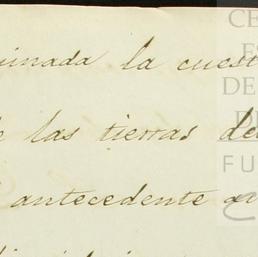 minada la cuest
e las tierras de
antecedente a
CE
ES
DE
FU